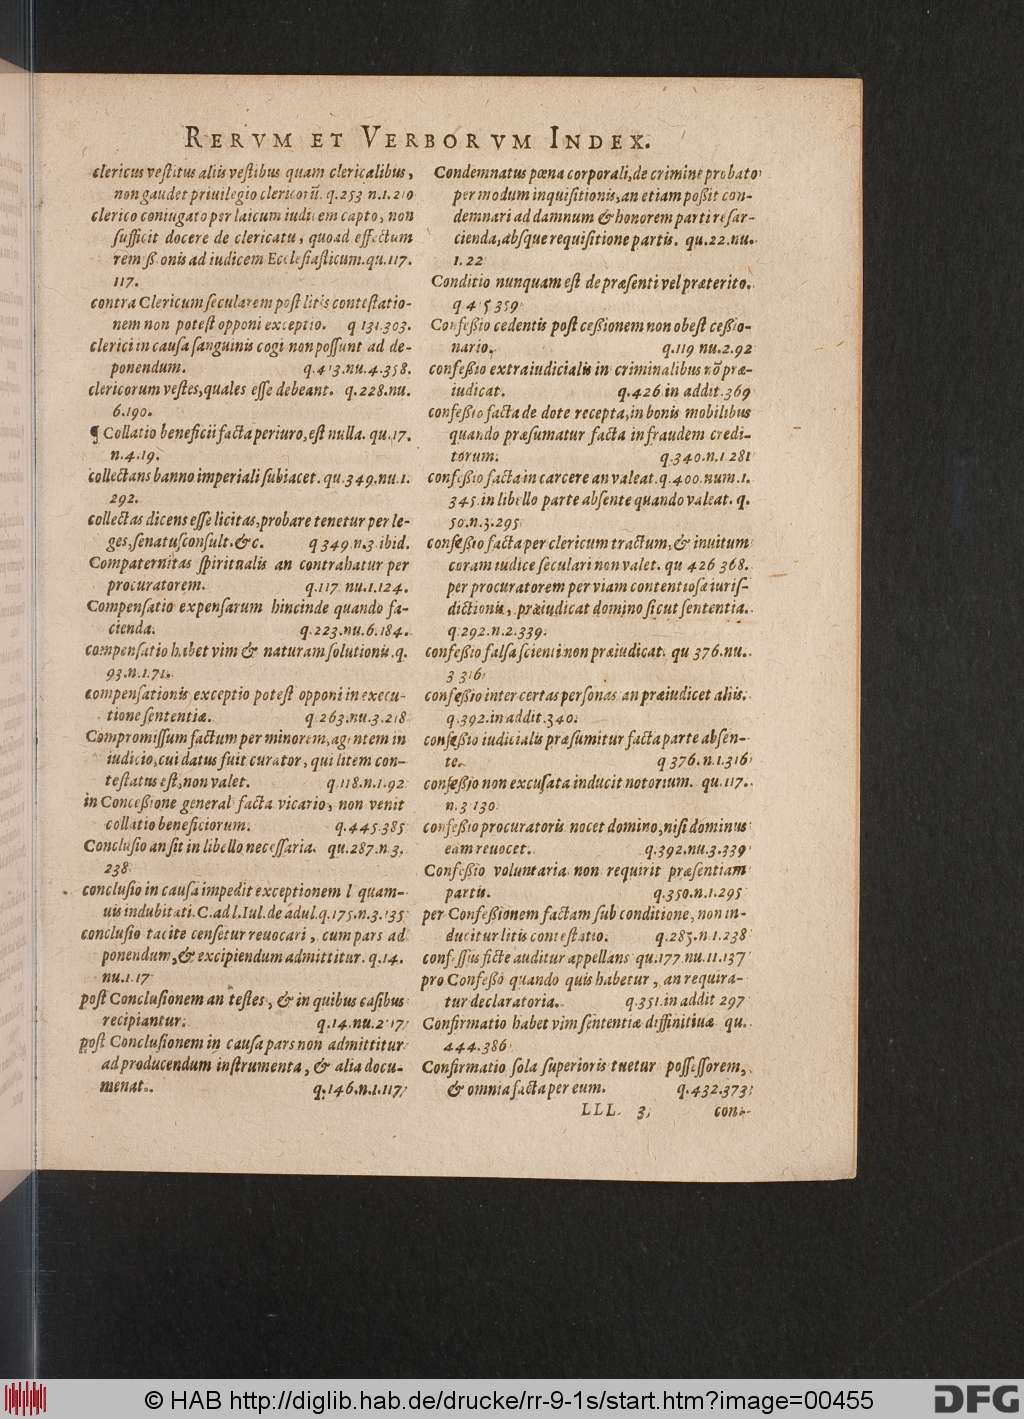 RERVM ET VERBORVM INDEX.
clericus vestitus aliis vestibus quam clericalibus,
non gaudet priuilegio clericorũ. q.253 n.1.210
clerico coniugato per laicum iudicem capto, non
sufficit docere de clericatu, quoad effectum
remißionis ad iudicem Ecclesiasticum.qu.117.
117.
contra Clericum secularem post litis contestatio-
nem non potest opponi exceptio. q 131.303.
clerici in causa sanguinis cogi non possunt ad de-
ponendum. q.413.nu.4.358.
clericorum vestes,quales esse debeant. q.228.nu.
6.190.
¶ Collatio beneficii facta periuro,est nulla. qu.17.
n.4.19.
collectans banno imperiali subiacet. qu.349.nu.1.
292.
collectas dicens esse licitas,probare tenetur per le-
ges,senatusconsult.&c. q 349.n.3.ibid.
Compaternitas spiritualis an contrahatur per
procuratorem. q.117 nu.1.124.
Compensatio expensarum hincinde quando fa-
cienda. q.223.nu.6.184.
compensatio habet vim & naturam solutionis.q.
93.n.1.71.
compensationis exceptio potest opponi in execu-
tione sententiæ. q.263.nu.3.218
Compromissum factum per minorem,agentem in
iudicio,cui datus fuit curator, qui litem con-
testatus est,non valet. q.118.n.1.92
in Conceßione general facta vicario, non venit
collatio beneficiorum. q.445.385
Conclusio an sit in libello necessaria. qu.287.n.3.
238
conclusio in causa impedit exceptionem l quam-
uis indubitati.C.ad l.Iul.de adul.q.175.n.3.135
conclusio tacite censetur reuocari, cum pars ad
ponendum,& excipiendum admittitur. q.14.
nu.1.17
post Conclusionem an testes, & in quibus casibus
recipiantur. q.14.nu.2.17
post Conclusionem in causa pars non admittitur
ad producendum instrumenta, & alia docu-
menta. q.146.n.1.117
Condemnatus pœna corporali,de crimine probato
per modum inquisitionis,an etiam poßit con-
demnari ad damnum & honorem parti resar-
cienda,absque requisitione partis. qu.22.nu.
1.22
Conditio nunquam est de præsenti vel præterito.
q 415 359
Confeßio cedentis post ceßionem non obest ceßio-
nario. q.119 nu.2.92
confeßio extraiudicialis in criminalibus nõ præ-
iudicat. q.426 in addit.369
confeßio facta de dote recepta,in bonis mobilibus
quando præsumatur facta in fraudem credi-
torum. q.340.n.1 281
confeßio facta in carcere an valeat.q.400.num.1.
345.in libello parte absente quando valeat. q.
50.n.3.295
confeßio facta per clericum tractum,& inuitum
coram iudice seculari non valet. qu 426 368.
per procuratorem per viam contentiosæ iuris-
dictionis, præiudicat domino sicut sententia.
q.292.n.2.339.
confeßio falsa scienti non præiudicat. qu 376.nu.
3 316
confeßio inter certas personas an præiudicet aliis.
q.392.in addit.340.
confeßio iudicialis præsumitur facta parte absen-
te. q 376.n.1.316
confeßio non excusata inducit notorium. qu.117.
n.3 130
confeßio procuratoris nocet domino,nisi dominus
eam reuocet. q.392.nu.3.339
Confeßio voluntaria non requirit præsentiam
partis. q.350.n.1.295
per Confeßionem factam sub conditione, non in-
ducitur litis contestatio. q.285.n.1.238
confessus ficte auditur appellans qu.177 nu.11.137
pro Confeßo quando quis habetur, an requira-
tur declaratoria. q.351.in addit 297
Confirmatio habet vim sententiæ diffinitiuæ qu.
444.386
Confirmatio sola superioris tuetur possessorem,
& omnia facta per eum. q.432.373
LLL 3 con-
© HAB http://diglib.hab.de/drucke/rr-9-1s/start.htm?image=00455
DFG